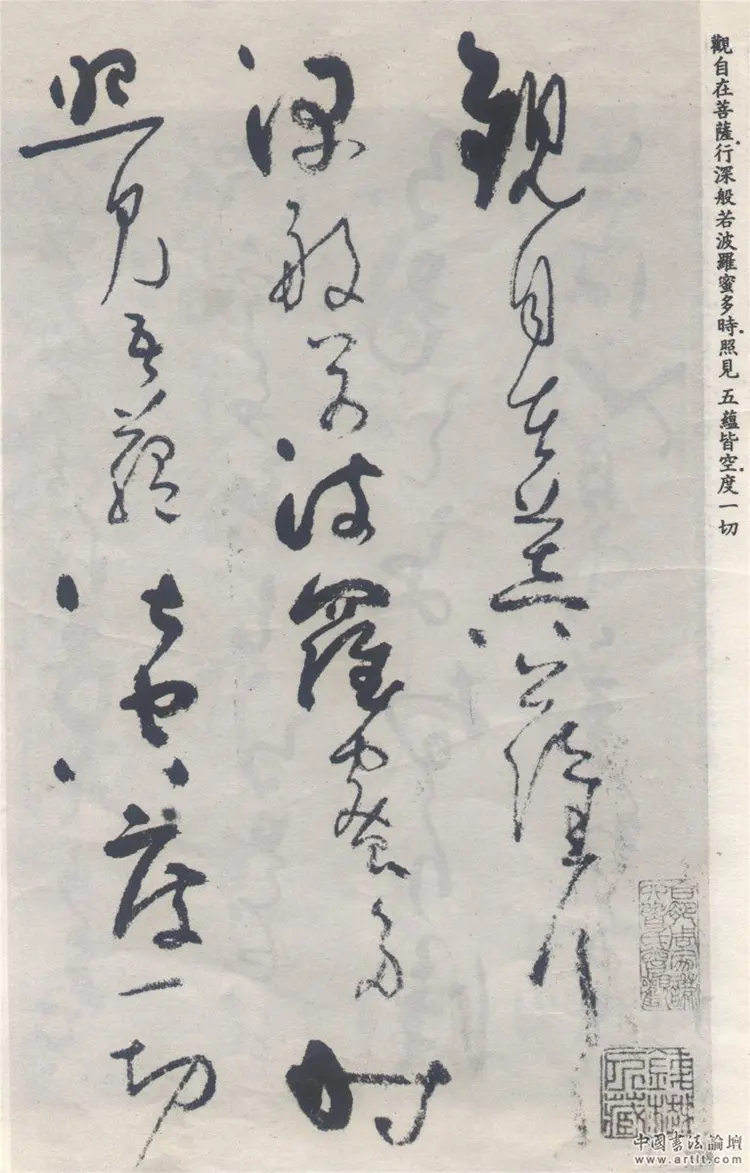 觀自在菩薩行深般若波羅蜜多時照見 五蘊皆空度一切
觀自在菩薩行
深般若波羅蜜多時
照見五蘊皆空度一切
中國書法論壇
www.artit.com